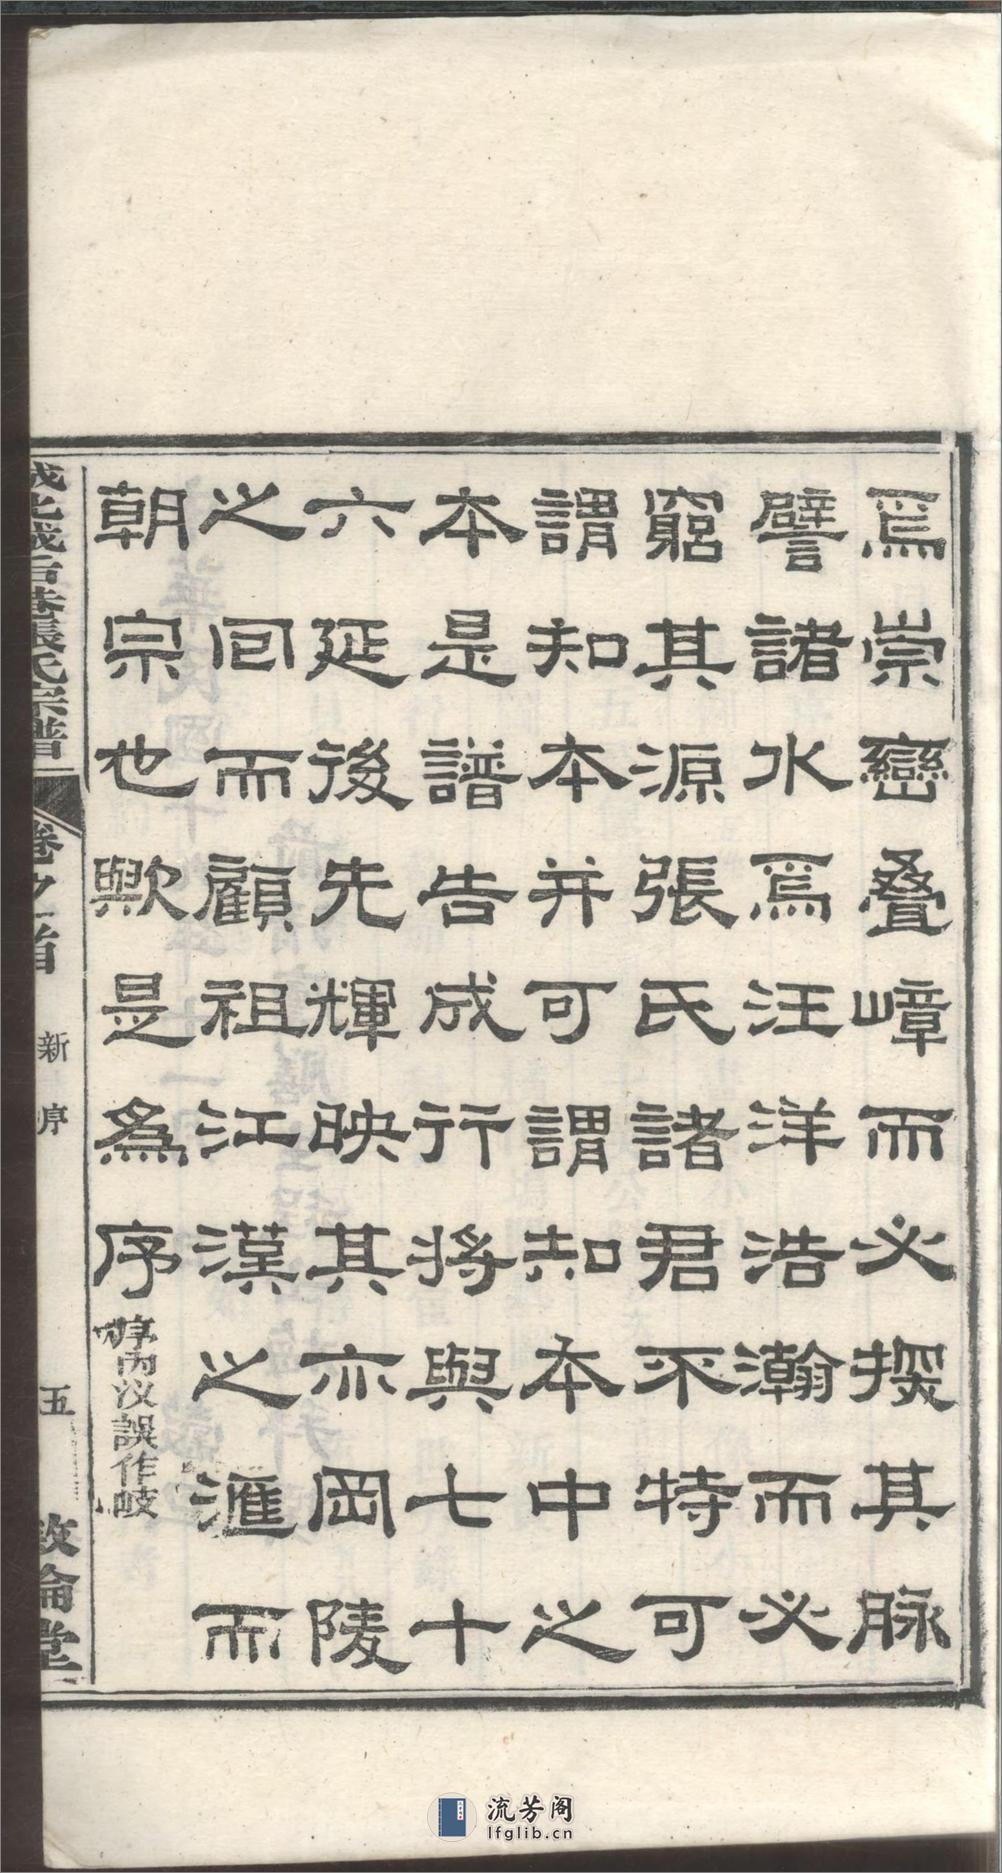 焉崇巒叠嶂而必探其脉
譬諸水焉汪洋浩瀚而必
窮其源張氏諸君不特可
謂知本并可謂知本中之
本是譜告成行將與七十
六延後先輝映其亦岡陵
之回而顧祖江漢之滙而
朝宗也歟是為序
序內汶誤作岐
張氏宗譜
卷之首
新序
五
敦倫堂
流芳阁
lfglib.cn